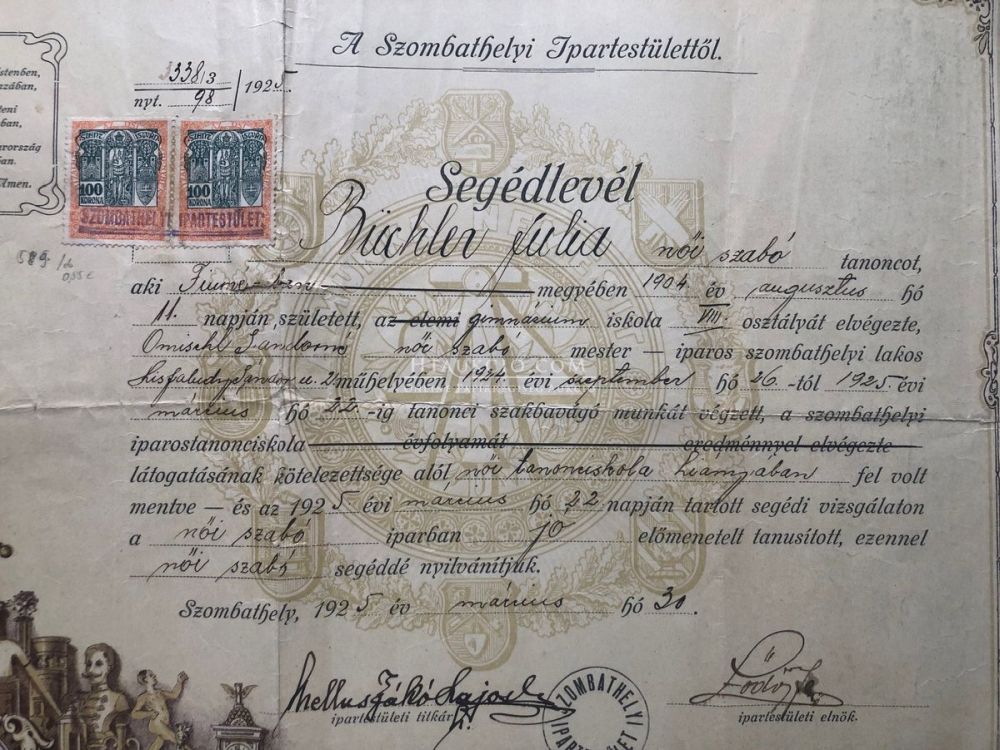 A Szombathelyi Ipartestülettől.
stenben,
zában,
teni
ban,
arország
ban.
Ámen.
3383
nyt. 98 / 1925
SZENT ISTVÁN SZENT ISTVÁN
100 KORONA 100 KORONA
SZOMBATHELYI IPARTESTÜLET
Segédlevél
Büchler Júlia női szabó tanoncot,
aki Fiume-ben megyében 1904 év augusztus hó
11. napján született, az elemi gimnázium iskola VIII osztályát elvégezte,
Omischl Sándorné női szabó mester — iparos szombathelyi lakos
Kisfaludy Sándor u. 2 műhelyében 1924 évi szeptember hó 26.-tól 1925. évi
március hó 22.-ig tanonci szakbavágó munkát végzett, a szombathelyi
iparostanonciskola évfolyamát eredménnyel elvégezte
látogatásának kötelezettsége alól női tanonciskola hiányában fel volt
mentve — és az 1925 évi március hó 22 napján tartott segédi vizsgálaton
a női szabó iparban jó előmenetelt tanusított, ezennel
női szabó segéddé nyilvánítjuk.
Szombathely, 1925 év március hó 30.
ipartestületi titkár
SZOMBATHELYI IPARTESTÜLET
ipartestületi elnök.